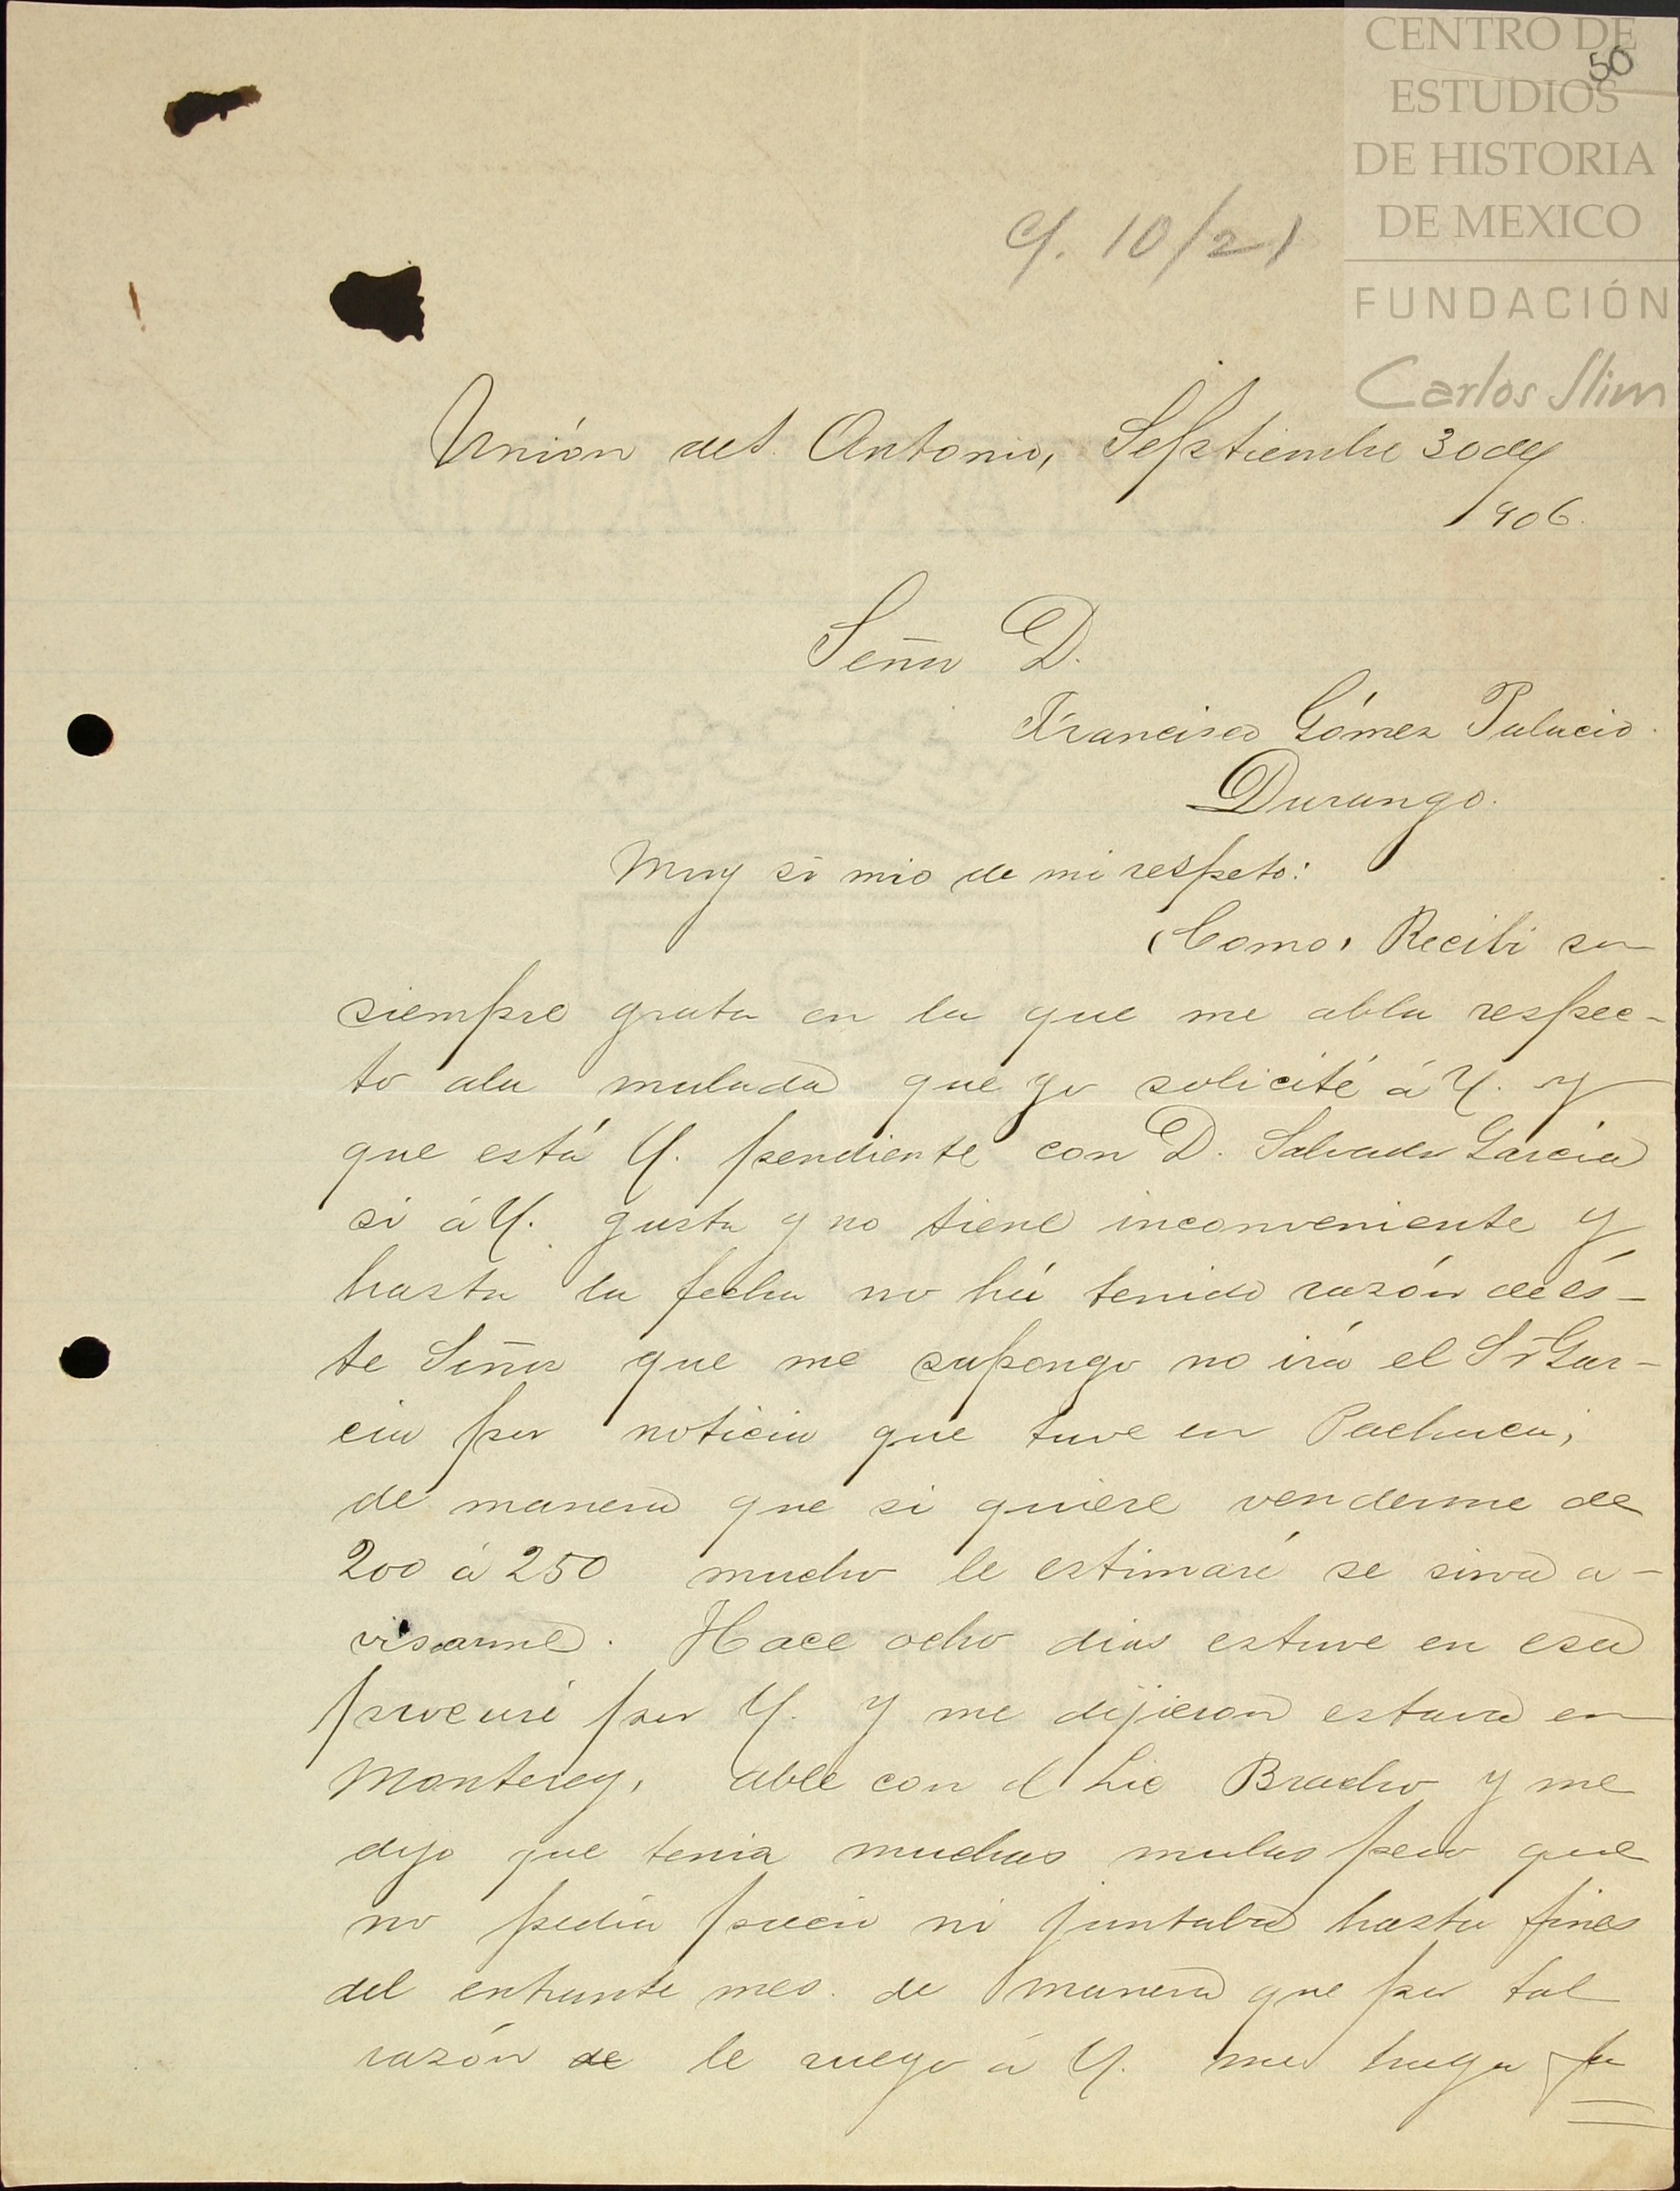 CENTRO DE
50
ESTUDIOS
DE HISTORIA
DE MEXICO
FUNDACIÓN
Carlos Slim
C/. 10/21
Unión de S. Antonio, Septiembre 30 de
1906.
Señor D.
Francisco Gómez Palacio.
Durango.
Muy sr mio de mi respeto:
Como, Recibi su
siempre grata en la que me abla respec-
to ala mulada que yo solicité á U. y
que está U. pendiente con D. Salvador Garcia
si á U. gusta y no tiene inconveniente y
hasta la fecha no há tenido razón de és-
te Señor que me supongo no irá el Sr Gar-
cia por noticia que tuve en Pachuca;
de manera que si quiere venderme de
200 á 250 mucho le estimaré se sirva a-
visarme. Hace ocho dias estuve en esa
procuré por U. y me dijieron estava en
Monterey, able con el Lic Bracho y me
dijo que tenia muchas mulas pero que
no pedia precio ni juntaba hasta fines
del entrante mes. de manera que por tal
razón de le ruego á U. me haga fa